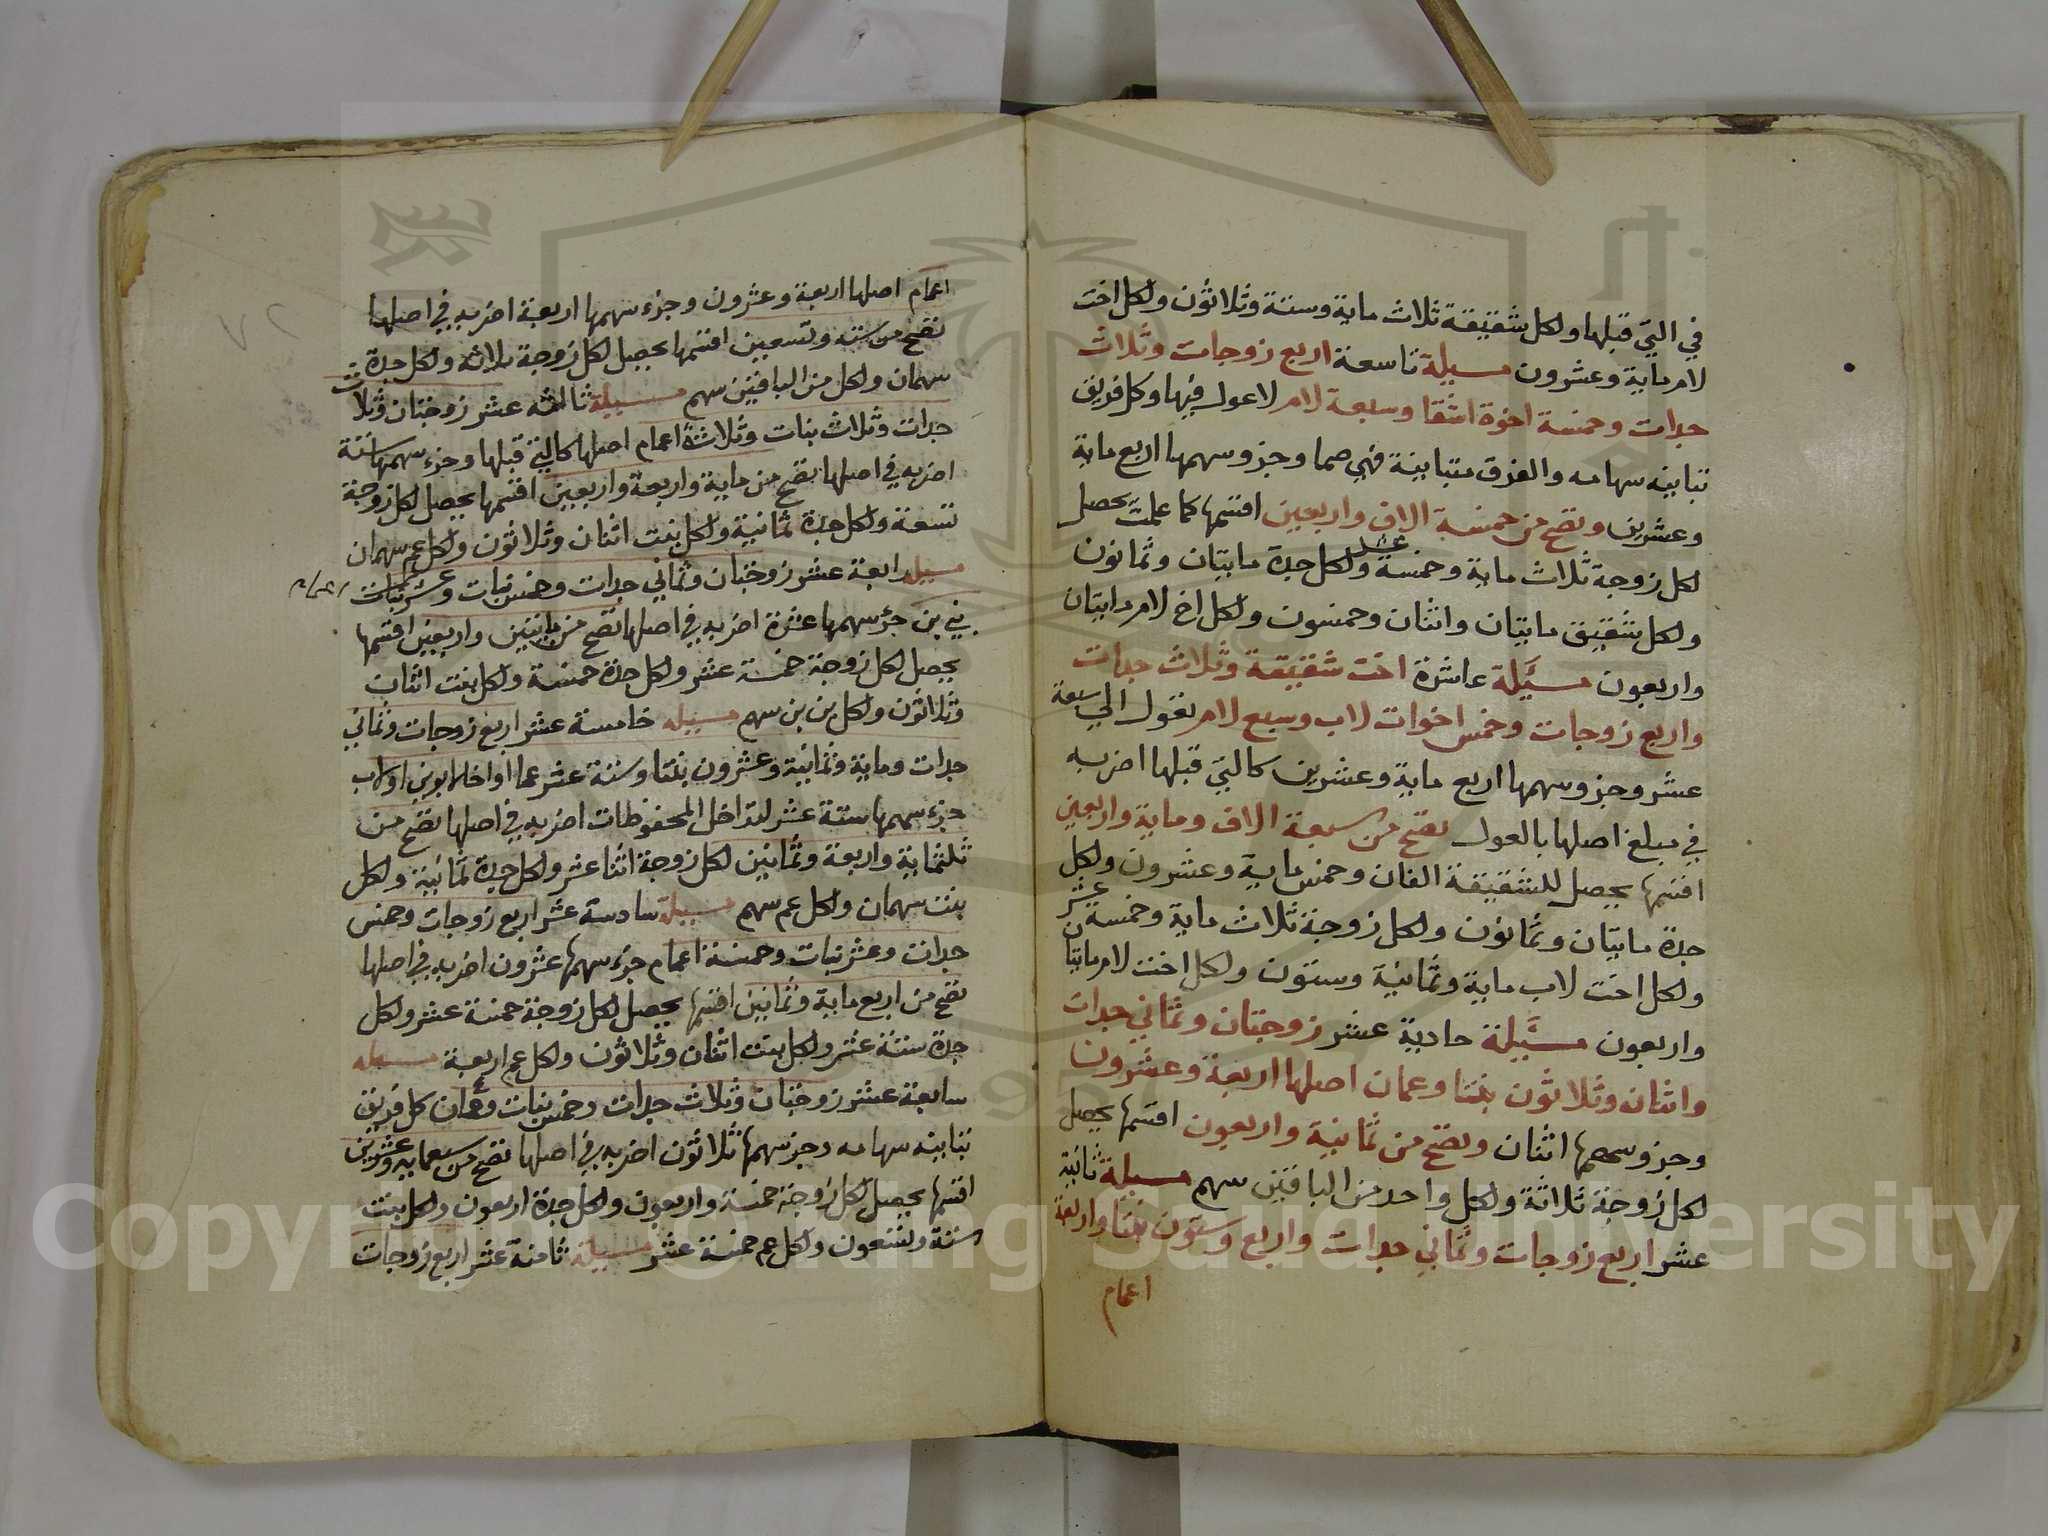 في التي قبلها ولكل شقيقة ثلاث ماية وستة وثلاثون ولكل اخت
لام ماية وعشرون مسيلة تاسعة اربع زوجات وثلاث
جدات وخمسة اخوة اشقا وسبعة لام لا عول فيها وكل فريق
تباينه سهامه والفرق متباينة فهي صما وجزو سهمها اربع ماية
وعشرين وتصح من خمسة الاف واربعين اقسمها كما علمت يحصل
لكل زوجة ثلاث ماية وخمسة عشر ولكل جدة مايتان وثمانون
ولكل شقيق مايتان واثنان وخمسون ولكل اخ لام مايتان
واربعون مسيلة عاشرة اخت شقيقة وثلاث جدات
واربع زوجات وخمس اخوات لاب وسبع لام تعول الي سبعة
عشر وجزو سهمها اربع ماية وعشرين كالتي قبلها اضربه
في مبلغ اصلها بالعول تصح من سبعة الاف وماية واربعين
اقسمها يحصل للشقيقة الفان وخمس ماية وعشرون ولكل
جدة مايتان وثمانون ولكل زوجة ثلاث ماية وخمسة عشر
ولكل اخت لاب ماية وثمانية وستون ولكل اخت لام مايتان
واربعون مسيلة حادية عشر زوجتان وثماني جدات
واثنان وثلاثون بنتا وعمان اصلها اربعة وعشرون
وجزو سهمها اثنان وتصح من ثمانية واربعون اقسمها يحصل
لكل زوجة ثلاثة ولكل واحد من الباقين سهم مسيلة ثانية
عشر اربع زوجات وثماني جدات واربع وستون بنتا واربعة
اعمام
اعمام اصلها اربعة وعشرون وجزء سهمها اربعة اضربه في اصلها
تصح من ستة وتسعين اقسمها يحصل لكل زوجة ثلاثة ولكل جدة
سهمان ولكل من الباقين سهم مسيلة ثالثه عشر زوجتان وثلاث
جدات وثلاث بنات وثلاثة اعمام اصلها كالتي قبلها وجزء سهمها ستة
اضربه في اصلها تصح من ماية واربعة واربعين اقسمها يحصل لكل زوجة
تسعة ولكل جدة ثمانية ولكل بنت اثنان وثلاثون ولكل عم سهمان
مسيلة رابعة عشر زوجتان وثماني جدات وخمس بنات وعشر بنات اعمام
بني بن جزء سهمها عشرة اضربه في اصلها تصح من مايتين واربعين اقسمها
يحصل لكل زوجة خمسة عشر ولكل جدة خمسة ولكل بنت اثنان
وثلاثون ولكل بن بن سهم مسيله خامسة عشر اربع زوجات وثماني
جدات وماية وثمانية وعشرون بنتا وستة عشر عما او اخا لابوين او لاب
جزء سهمها ستة عشر لتداخل المحفوظات اضربه في اصلها تصح من
ثلثماية واربعة وثمانين لكل زوجة اثنا عشر ولكل جدة ثمانية ولكل
بنت سهمان ولكل عم سهم مسيلة سادسة عشر اربع زوجات وخمس
جدات وعشر بنات وخمسة اعمام جزء سهمها عشرون اضربه في اصلها
تصح من اربع ماية وثمانين اقسمها يحصل لكل زوجة خمسة عشر ولكل
جدة ستة عشر ولكل بنت اثنان وثلاثون ولكل عم اربعة مسيله
سابعة عشر زوجتان وثلاث جدات وخمس بنات وعمان كل فريق
تباينه سهامه وجز سهمها ثلاثون اضربه في اصلها تصح من سبعمايه وعشرين
اقسمها يحصل لكل زوجة خمسة واربعون ولكل جدة اربعون ولكل بنت
ستة وتسعون ولكل عم خمسة عشر مسيلة ثامنة عشر اربع زوجات
Copyright © King Saud University